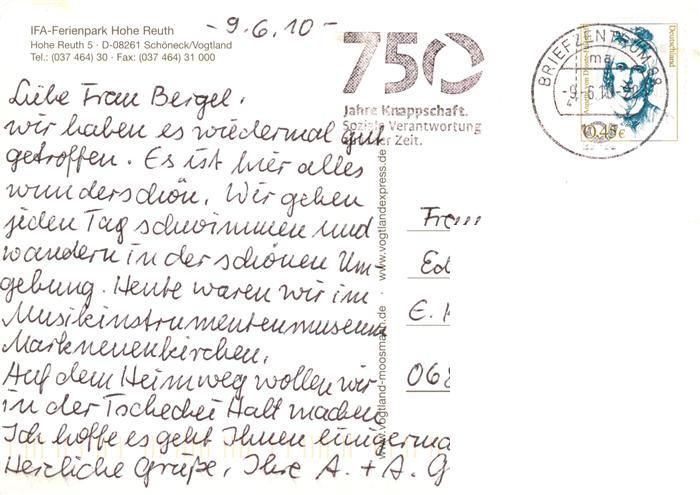 IFA-Ferienpark Hohe Reuth
Hohe Reuth 5 · D-08261 Schöneck/Vogtland
Tel.: (037 464) 30 · Fax: (037 464) 31 000
-9.6.10-
750
Jahre Knappschaft.
Soziale Verantwortung
der Zeit.
BRIEFZENTRUM 08
ma
-9.-6.10
Deutschland
0,45€
Liebe Frau Bergel,
wir haben es wiedermal gut
getroffen. Es ist hier alles
wunderschön. Wir gehen
jeden Tag schwimmen und
wandern in der schönen Um-
gebung. Heute waren wir im
Musikinstrumentenmuseum
Markneuenkirchen.
Auf dem Heimweg wollen wir
in der Tschechei Halt machen
Ich hoffe es geht Ihnen einigerma
Herzliche Grüße, Ihre A. + A. G
www.vogtland-moosmann.de · www.vogtlandexpress.de
Frau
Ed
E.
068